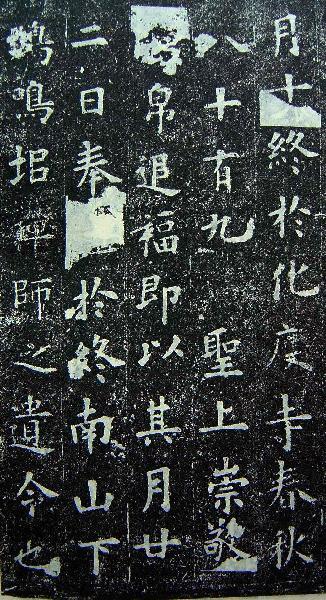 月十終於化度寺春秋
八十有九聖上崇敬
帛追福即以其月廿
二日奉於終南山下
鵄鳴垖禪師之遺令也